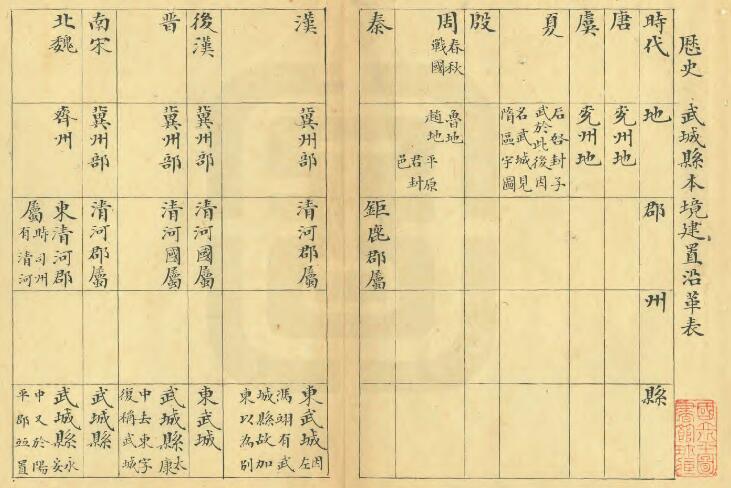 歷史 武城縣本境建置沿革表
時代 地 郡 州 縣
唐 兗州地
虞 兗州地
夏 后啓封子
武於此後因
名武城見
隋區宇圖
殷
周 春秋 魯地
戰國 趙地 平原
君封
邑
秦 鉅鹿郡屬
漢 冀州部 清河郡屬 東武城 因左
馮翊有武
城縣故加
東以為別
後漢 冀州部 清河國屬 東武城
晉 冀州部 清河國屬 武城縣 太康
中去東字
復稱武城
南宋 冀州部 清河郡屬 武城縣
北魏 齊州 東清河郡 武城縣 永安
屬 時司州 中又於陽
有清河 平郡亞置